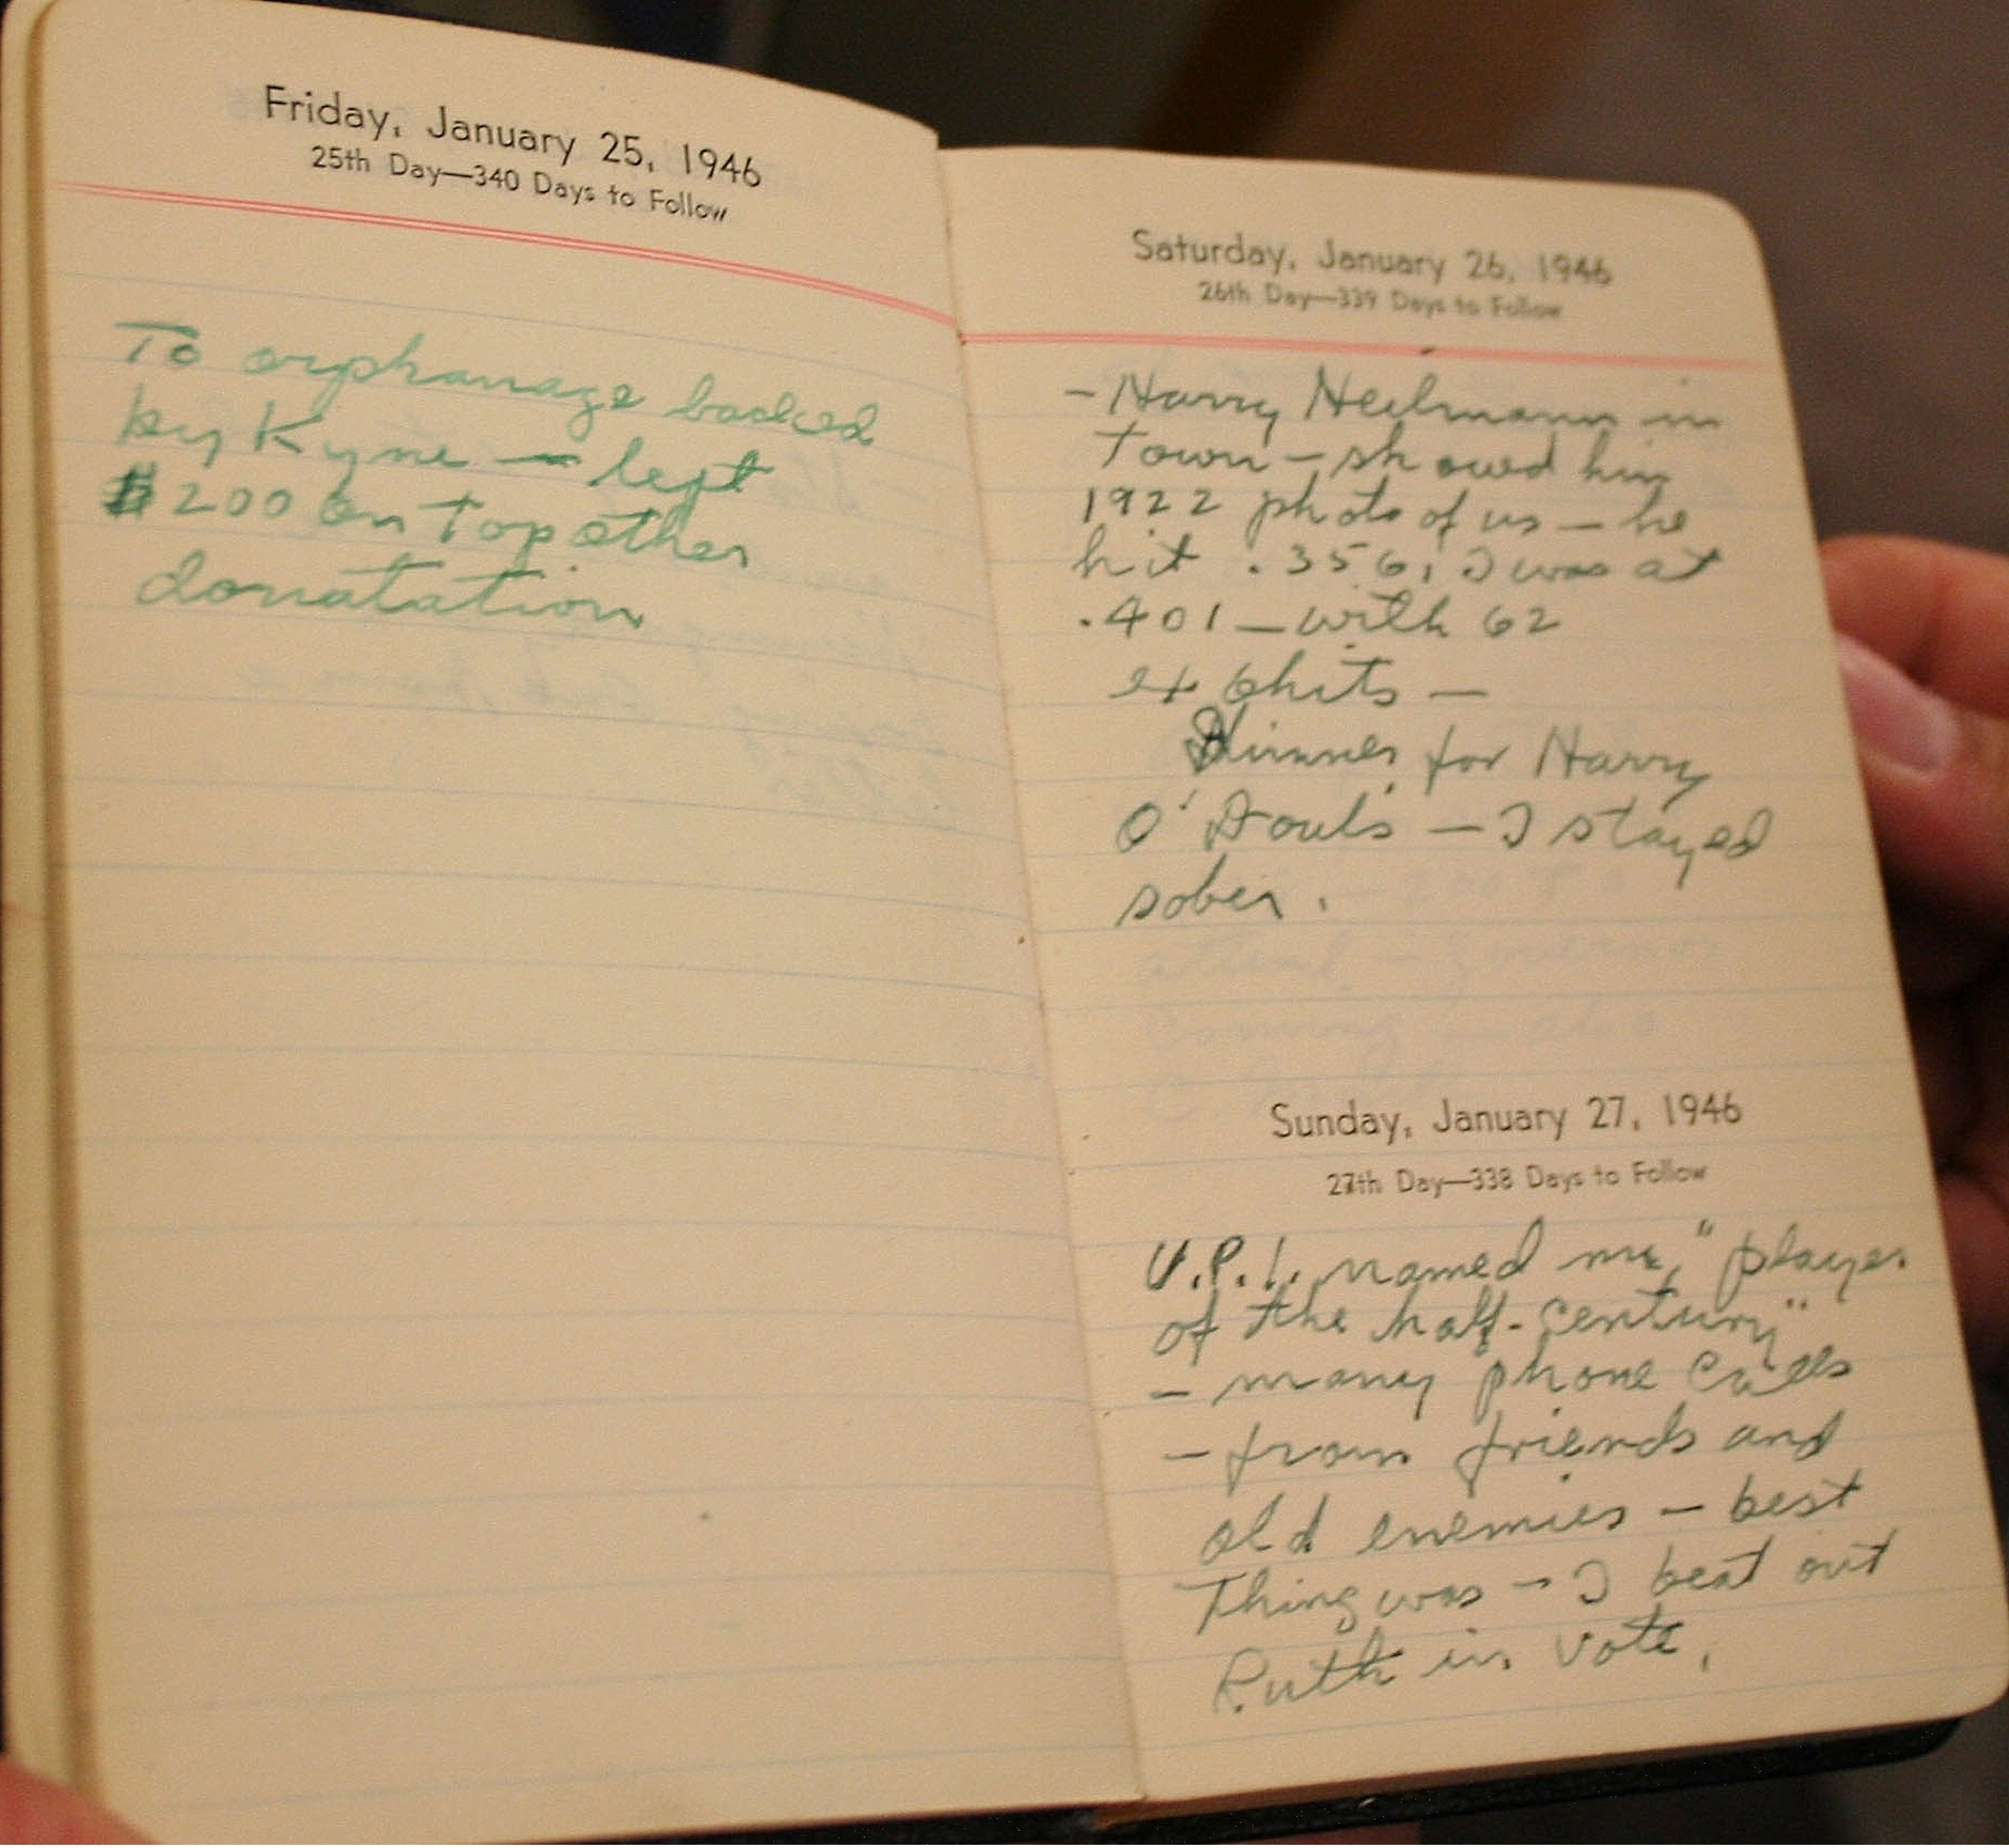 Friday, January 25, 1946
25th Day—340 Days to Follow
To orphanage backed
by Kyne — left
$200 on top other
donatation
Saturday, January 26, 1946
26th Day—339 Days to Follow
- Harry Heilmann in
Town - showed him
1922 photo of us - he
hit .356; I was at
.401 - with 62
ex bhits -
Dinner for Harry
O'Douls - I stayed
sober.
Sunday, January 27, 1946
27th Day—338 Days to Follow
U.P.I. named me, "player
of the half-century"
- many phone calls
- from friends and
old enemies - best
Thing was - I beat out
Ruth in vote.